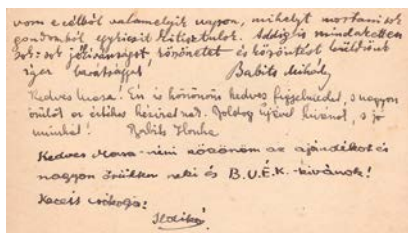 vom e célból valamelyik napon, mihelyt mostani sok
gondomból egy kicsit kitisztulok. Addig is mindketten
sok-sok jókívánságot, köszönetet és köszöntést küldünk
igaz barátsággal
Babits Mihály
Kedves Mara! Én is köszönöm kedves figyelmedet, s nagyon
örülök az értékes kéziratnak. Boldog újévet kívánok, s jó
munkát! Babits Ilonka
Kedves Mara-néni köszönöm az ajándékot és
nagyon örültem neki és B.U.É.K.-kívánok!
Kezeit csókolja:
Ildikó